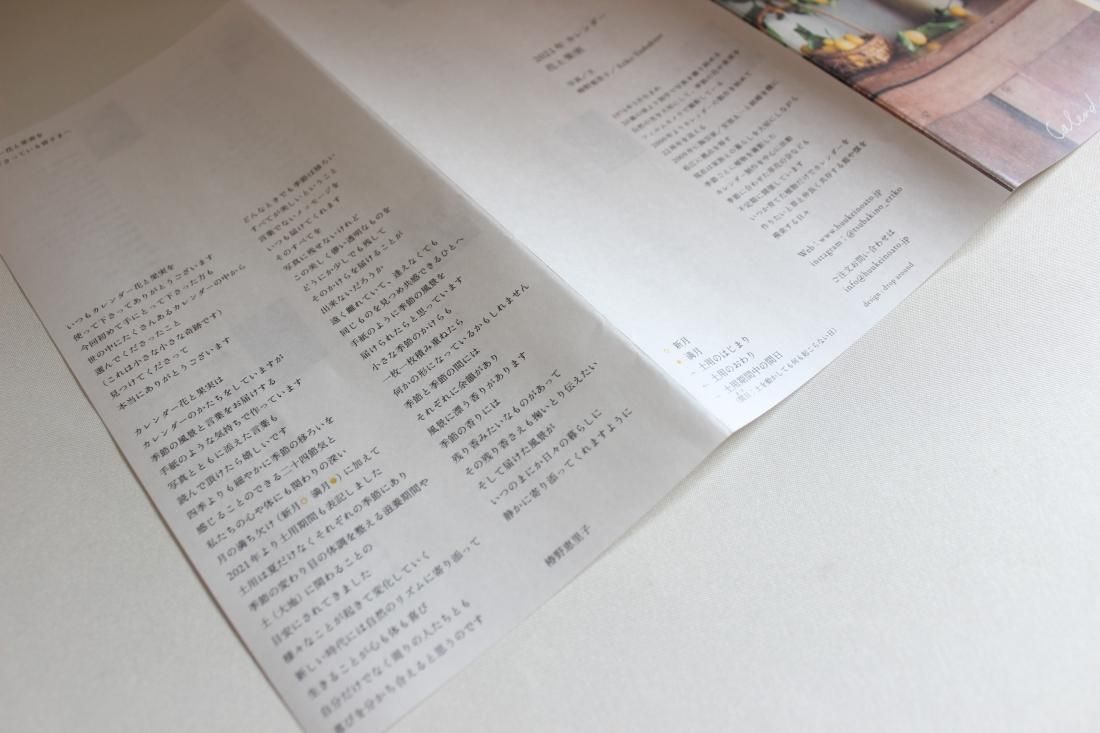 いつもカレンダー花と果実を
使って下さってありがとうございます
今回初めて手にとって下さった方も
世の中にたくさんあるカレンダーの中から
選んでくださったこと
（これは小さな小さな奇跡です）
見つけてくださって
本当にありがとうございます
カレンダー花と果実は
カレンダーのかたちをしていますが
季節の風景と言葉をお届けする
手紙のような気持ちで作っています
写真とともに添えた言葉も
読んで頂けたら嬉しいです
四季よりも細やかに季節の移ろいを
感じることのできる二十四節気と
私たちの心や体にも関わりの深い
月の満ち欠け（新月 満月）に加えて
2021年より土用期間も表記しました
土用は夏だけなくそれぞれの季節にあり
季節の変わり目の体調を整える滋養期間や
土（大地）に関わることの
目安にされてきました
様々なことが起きて変化していく
新しい時代には自然のリズムに寄り添って
生きることが心も体も喜び
自分だけでなく周りの人たちとも
喜びを分かち合えると思うのです
どんなときでも季節は移ろい
すべてが美しいということ
言葉でないメッセージを
いつも届けてくれます
そのすべてを
写真に残せないけれど
この美しく儚い透明なものを
どうにか少しでも残して
そのかけらを届けることが
出来ないだろうか
遠く離れていて、逢えなくても
同じものを見つめ共感できるひとへ
手紙のように季節の風景を
届けられたらと思っています
小さな季節のかけらも
一枚一枚積み重ねたら
何かの形になっているかもしれません
季節と季節の間には
それぞれに余韻があり
風景に漂う香りがあります
季節の香りには
残り香みたいなものがあって
その残り香さえも掬いとり伝えたい
そして届けた風景が
いつのまにか日々の暮らしに
静かに寄り添ってくれますように
椿野恵里子
2021年 カレンダー
花と果実
写真／文
椿野恵里子／Eriko Tsubakino
季節ごとに植物を撮影した
カレンダー制作を中心に活動
季節に合わせた草花の会なども
不定期に開催しています
いつか育てた植物だけでカレンダーを
作りたいと
模索する日々
Web : www.huukeinoato.jp
instagram : @tsubakino_eriko
ご注文お問い合わせは
info@huukeinoato.jp
design : drop around
新月
満月
土用のはじまり
土用のおわり
土用期間中の間日
（間日：土を動かしても何も起こらない日）
Calend